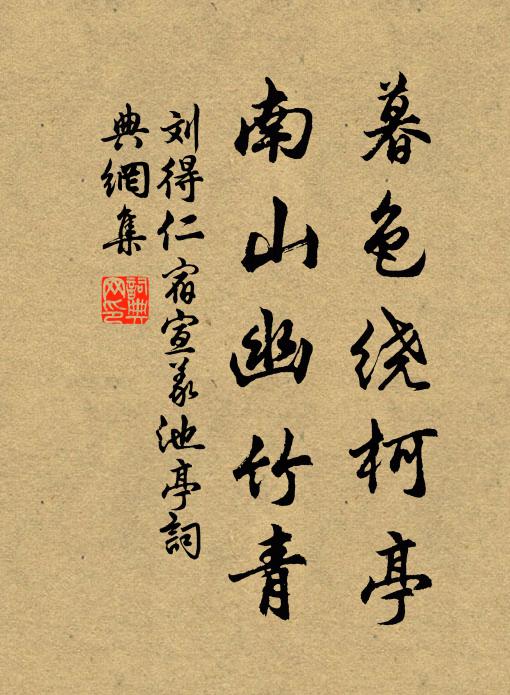 暮色绕柯亭
南山幽竹青
刘得仁宿宣义池亭詞
典網集
詞典网印